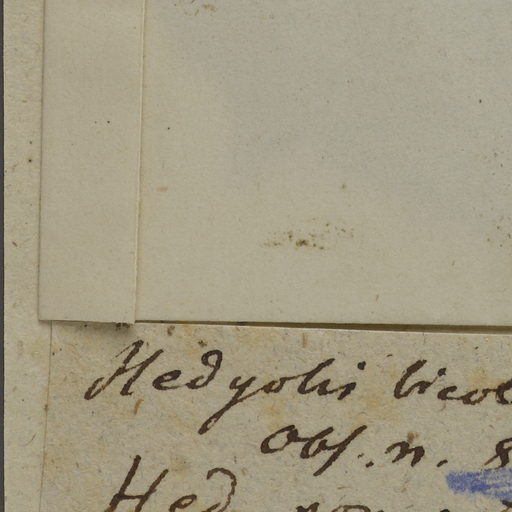 Hedyotis bicol
Obs. n. 8
Hed